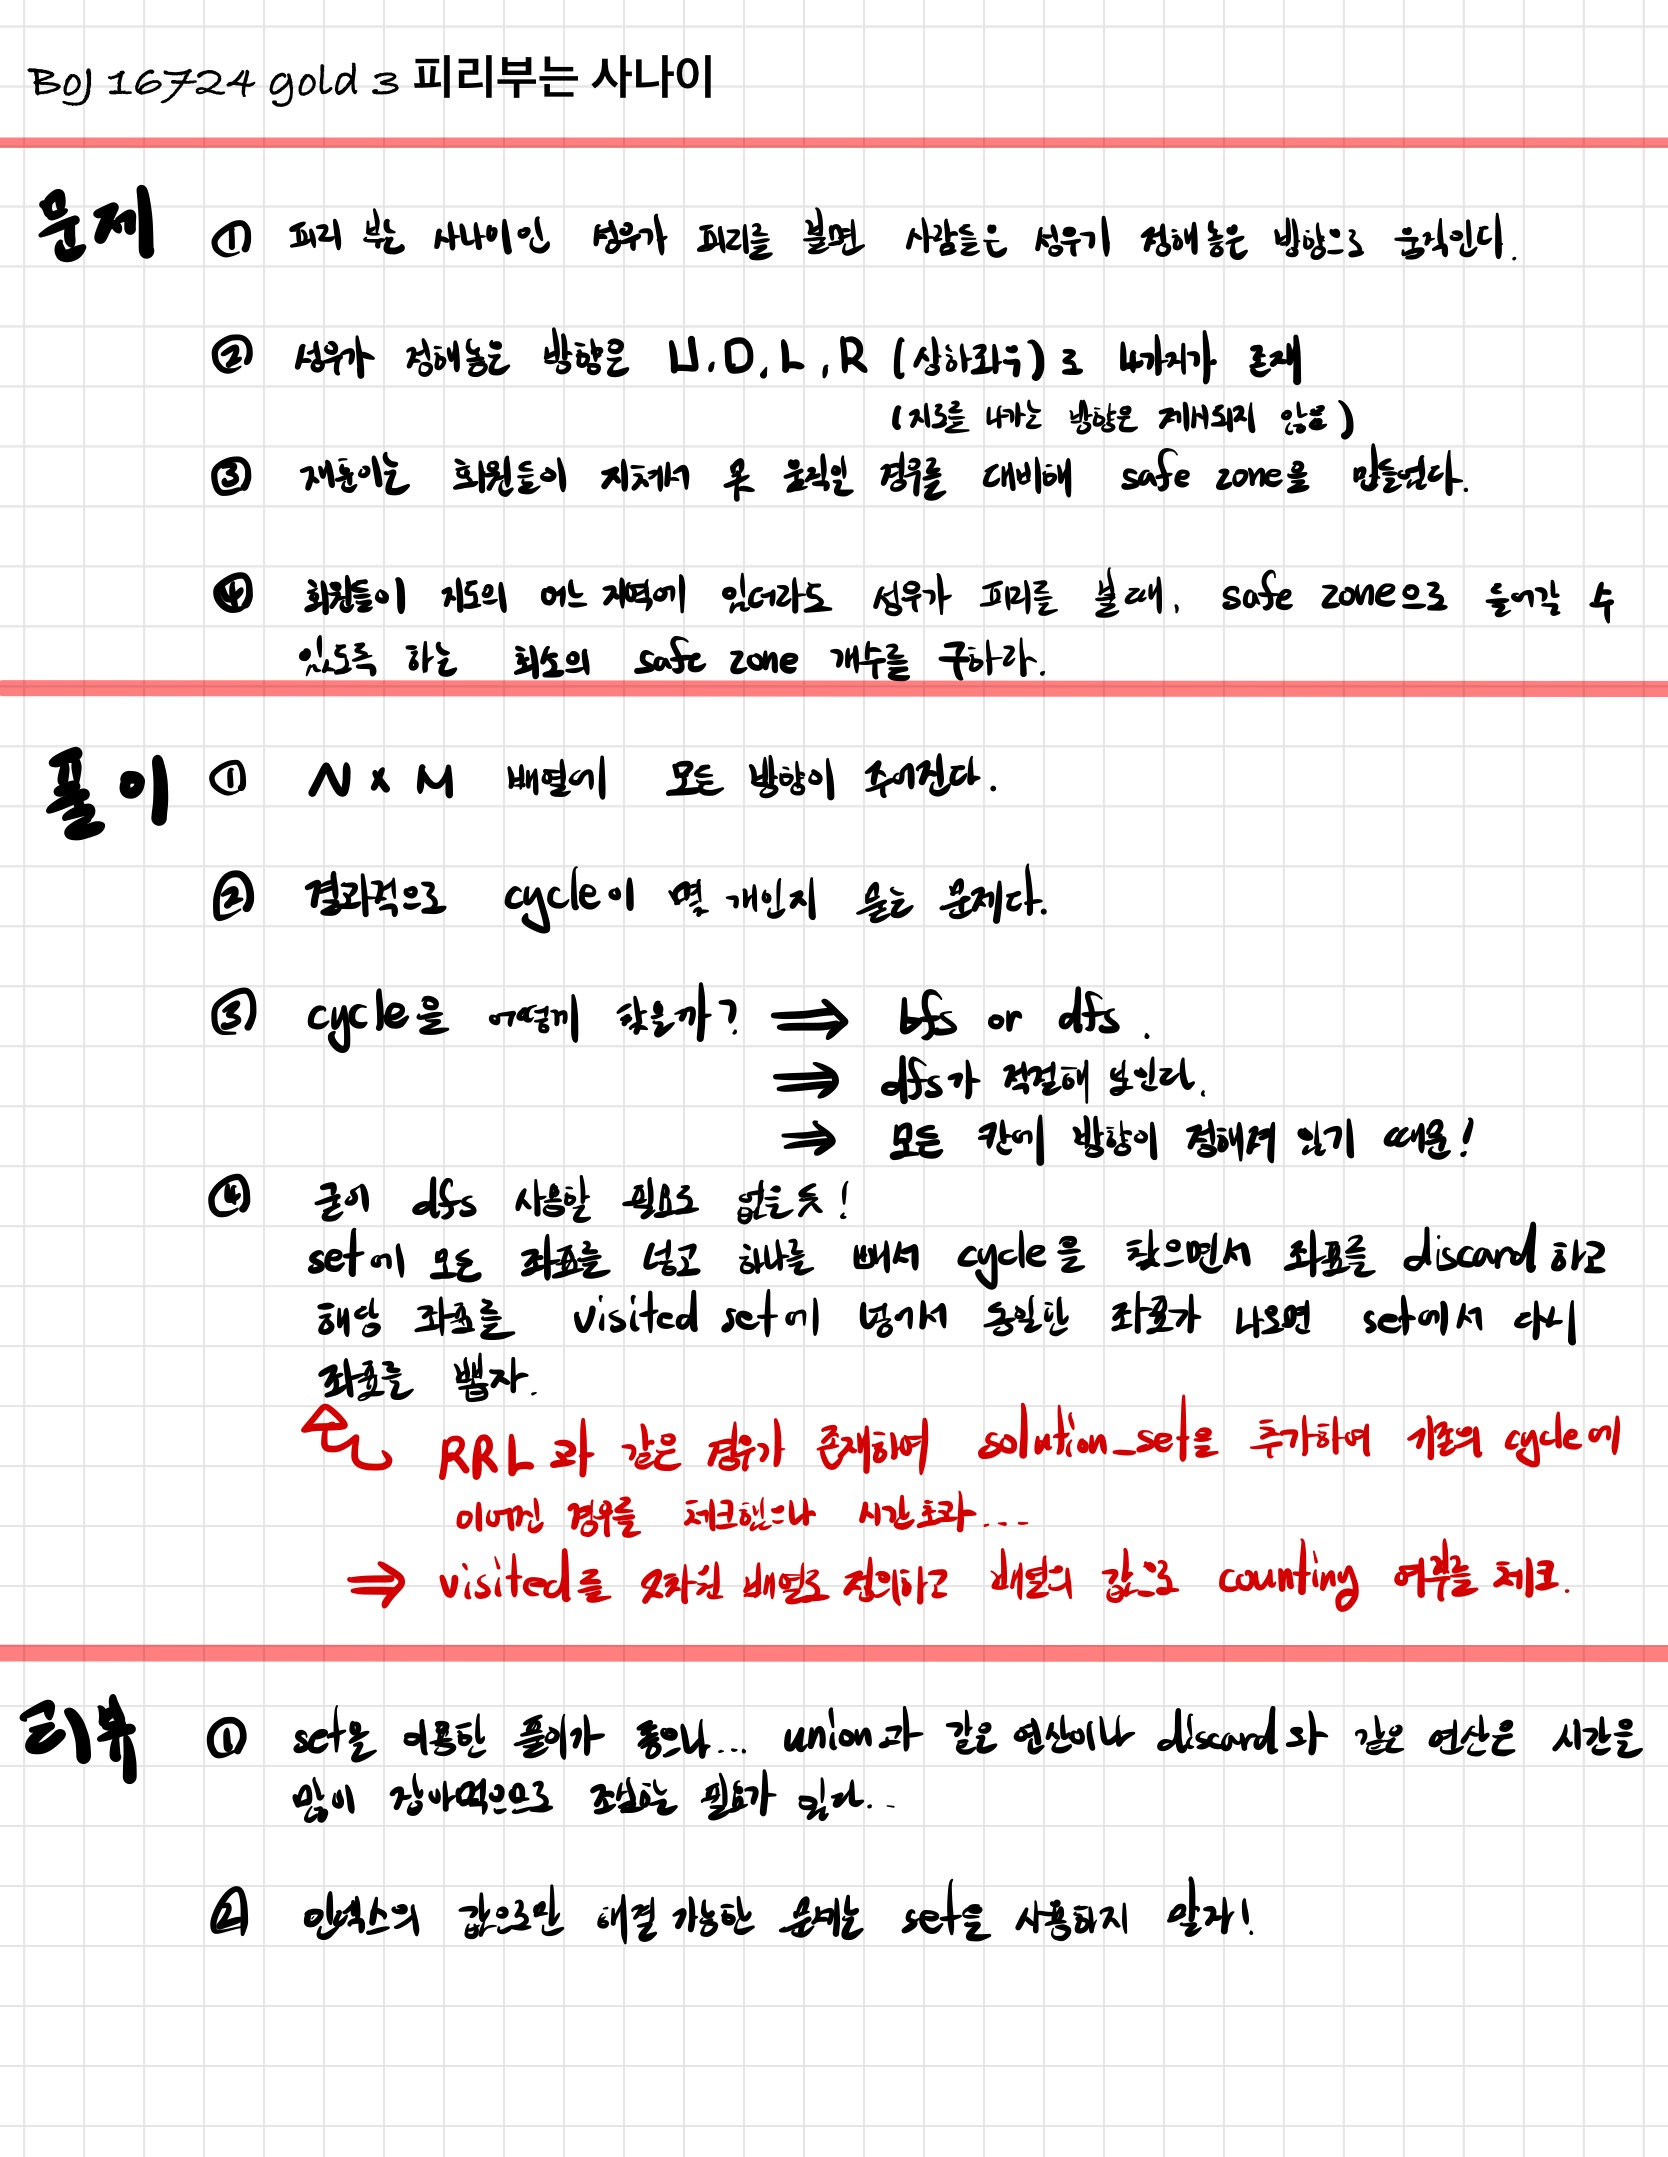 BOJ 16724 gold 3 피리부는 사나이
문제 ① 피리 부는 사나이인 성우가 피리를 불면 사람들은 성우가 정해놓은 방향으로 움직인다.
② 성우가 정해놓은 방향은 U, D, L, R (상하좌우)로 4가지가 존재
(지도를 나가는 방향은 제시되지 않음)
③ 재훈이는 회원들이 지쳐서 못 움직일 경우를 대비해 safe zone을 만들었다.
④ 회원들이 지도의 어느 지역에 있더라도 성우가 피리를 불 때, safe zone으로 들어갈 수
있도록 하는 최소의 safe zone 개수를 구하라.
풀이 ① N x M 배열에 모든 방향이 주어진다.
② 결과적으로 cycle이 몇 개인지 묻는 문제다.
③ cycle을 어떻게 찾을까? ⇒ bfs or dfs.
⇒ dfs가 적절해 보인다.
⇒ 모든 칸에 방향이 정해져 있기 때문!
④ 굳이 dfs 사용할 필요도 없을듯!
set에 모든 좌표를 넣고 하나를 빼서 cycle을 찾으면서 좌표를 discard하고
해당 좌표를 visited set에 넣어서 동일한 좌표가 나오면 set에서 다시
좌표를 뽑자.
RRL과 같은 경우가 존재하여 solution_set을 추가하여 기존의 cycle에
이어진 경우를 체크했으나 시간초과...
⇒ visited를 2차원 배열로 정의하고 배열의 값으로 counting 여부를 체크.
리뷰 ① set을 이용한 풀이가 좋으나... union과 같은 연산이나 discard와 같은 연산은 시간을
많이 잡아먹으므로 조심하는 필요가 있다..
② 인덱스의 값으로만 해결 가능한 문제는 set을 사용하지 말자!